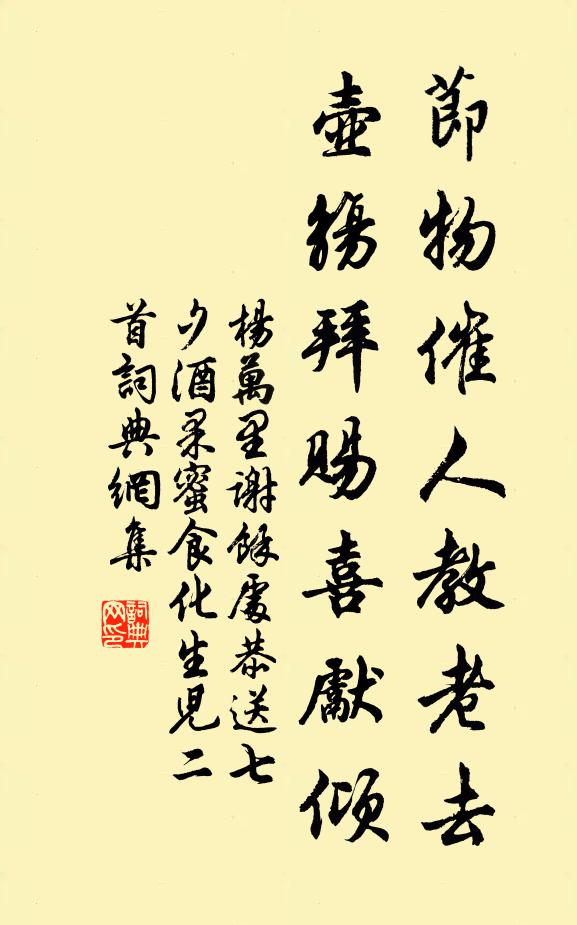 節物催人教老去
壺觴拜賜喜獻傾
楊萬里謝餘處恭送七
夕酒果蜜食化生兒二
首詞典網集
詞典
网印